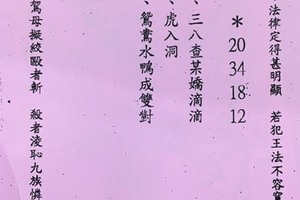 法律定得甚明顯 若犯王法不容
＊20 34 18 12
、三八查某嬌滴滴
、虎入洞
、鴛鴦水鴨成雙對
罵母擬絞毆者斬 殺者凌恥九族憐